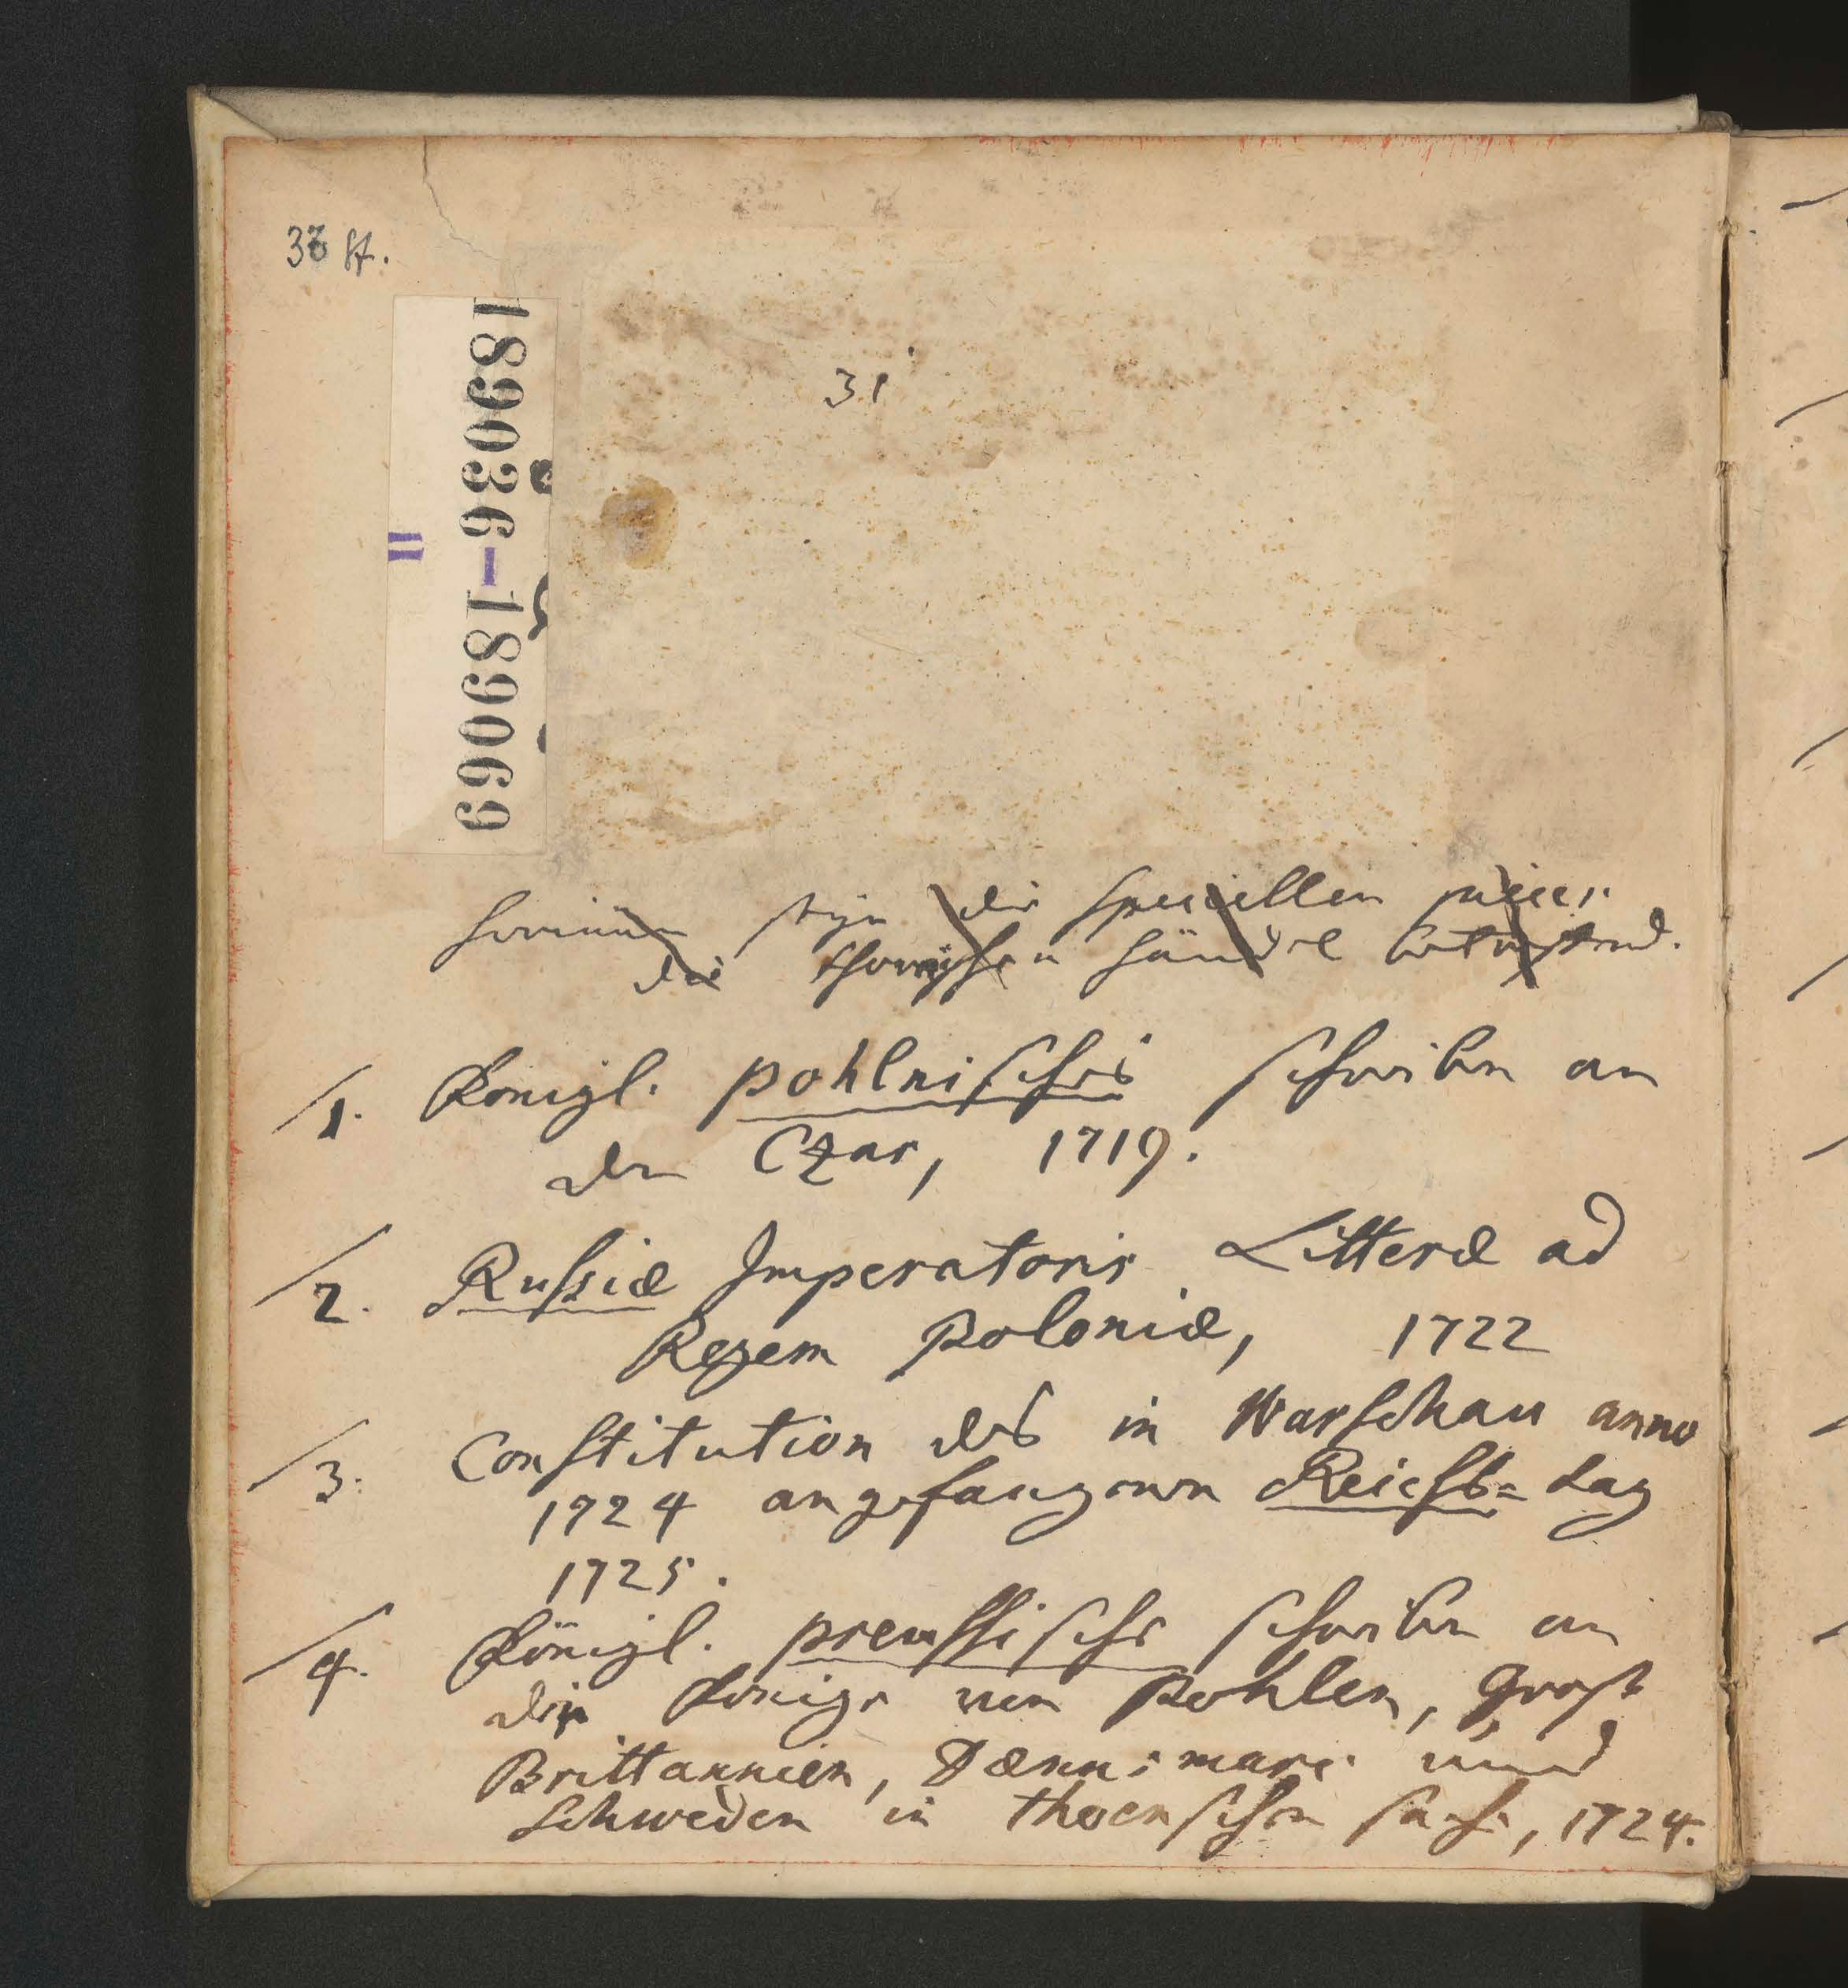 33 St.
189036-189069
II
31
hierinn seyn die speciellen
die thornischen händel betreffend.
1. Königl. pohlnisches schreiben an
den Czar, 1719.
2. Rußiæ Imperatoris Litteræ ad
Regem Poloniæ, 1722
3. Constitution des in Warschau anno
1724 angefangenen Reichs=tag
1725.
4. Königl. preussische schreiben an
die Könige von Pohlen, Groß
Brittannien, Dænnemarc und
Schweden in thornschen sache, 1724.